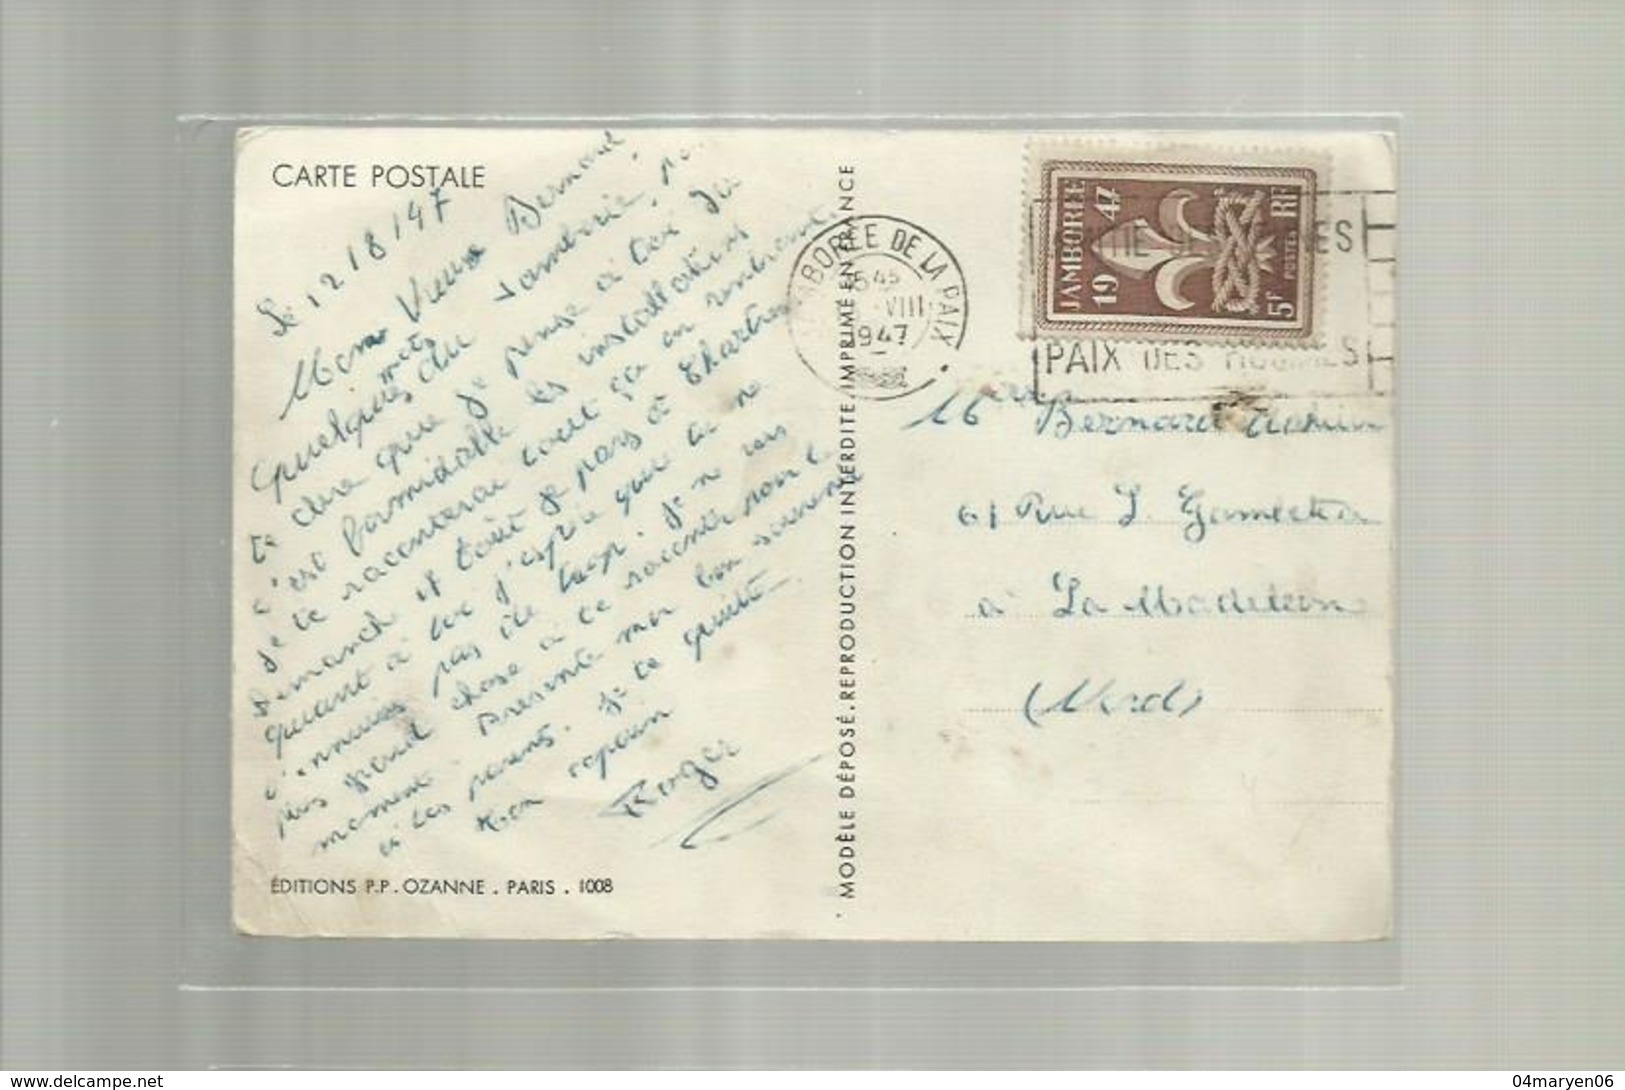 CARTE POSTALE
Le 12/8/47
Mon Vieux Bernard,
Quelques mots
du Jamborée, pour
te dire que je pense à toi
c'est formidable les installations
je te raconterai tout ça en rentrant.
Demanch je pars à Chartres
quant à toi j'espère que tu ne
t'ennuies pas de trop. Je ne vois
pas grand chose à te raconter pour le
moment. Présente mon bon souvenir
à tes parents. Je te quitte
Ton copain
Roger
ÉDITIONS P.P. OZANNE . PARIS . 1008
MODÈLE DÉPOSÉ. REPRODUCTION INTERDITE. IMPRIMÉ EN FRANCE
JAMBOREE DE LA PAIX
45
VIII
1947
PAIX DES HOMMES
JAMBORÉE
1947
5F POSTES RF
Bernard
61 Rue L. Gambetta
à La Madeleine
(Nord)
04maryen06
© www.delcampe.net